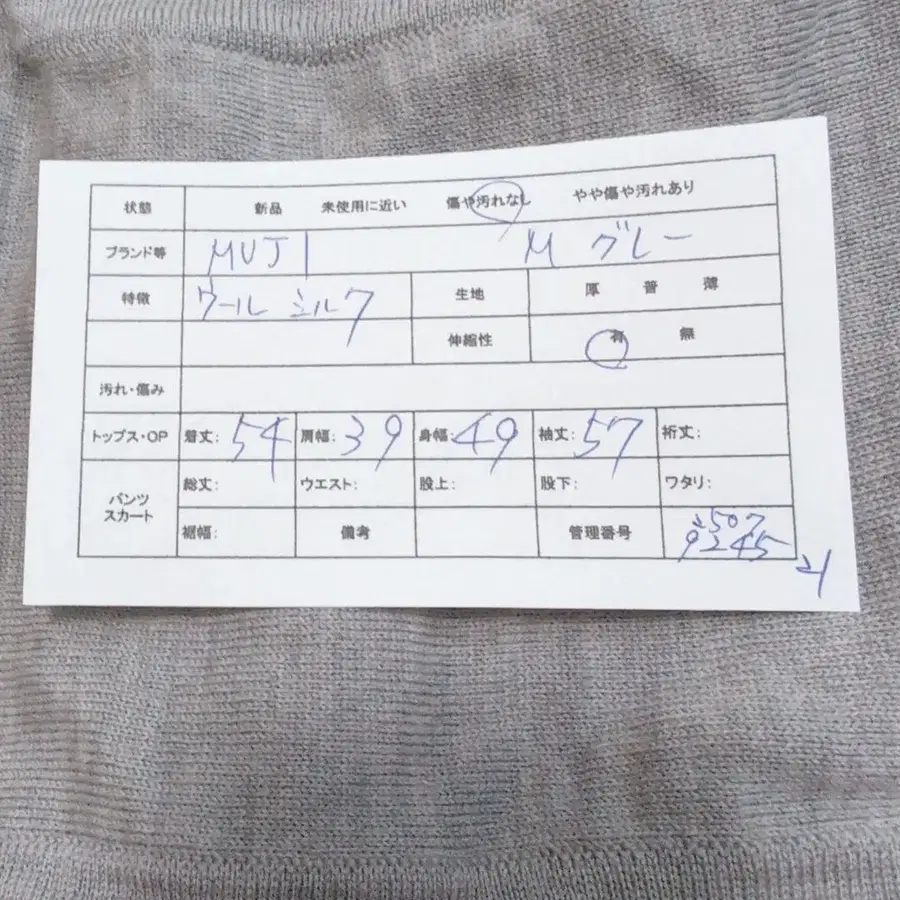 状態 新品 未使用に近い 傷や汚れなし やや傷や汚れあり
ブランド等 MUJI M グレー
特徴 ウール シルク 生地 厚 普 薄
伸縮性 有 無
汚れ・傷み
トップス・OP 着丈: 54 肩幅: 39 身幅: 49 袖丈: 57 裄丈:
パンツ スカート 総丈: ウエスト: 股上: 股下: ワタリ:
裾幅: 備考 管理番号 2507
9245
21